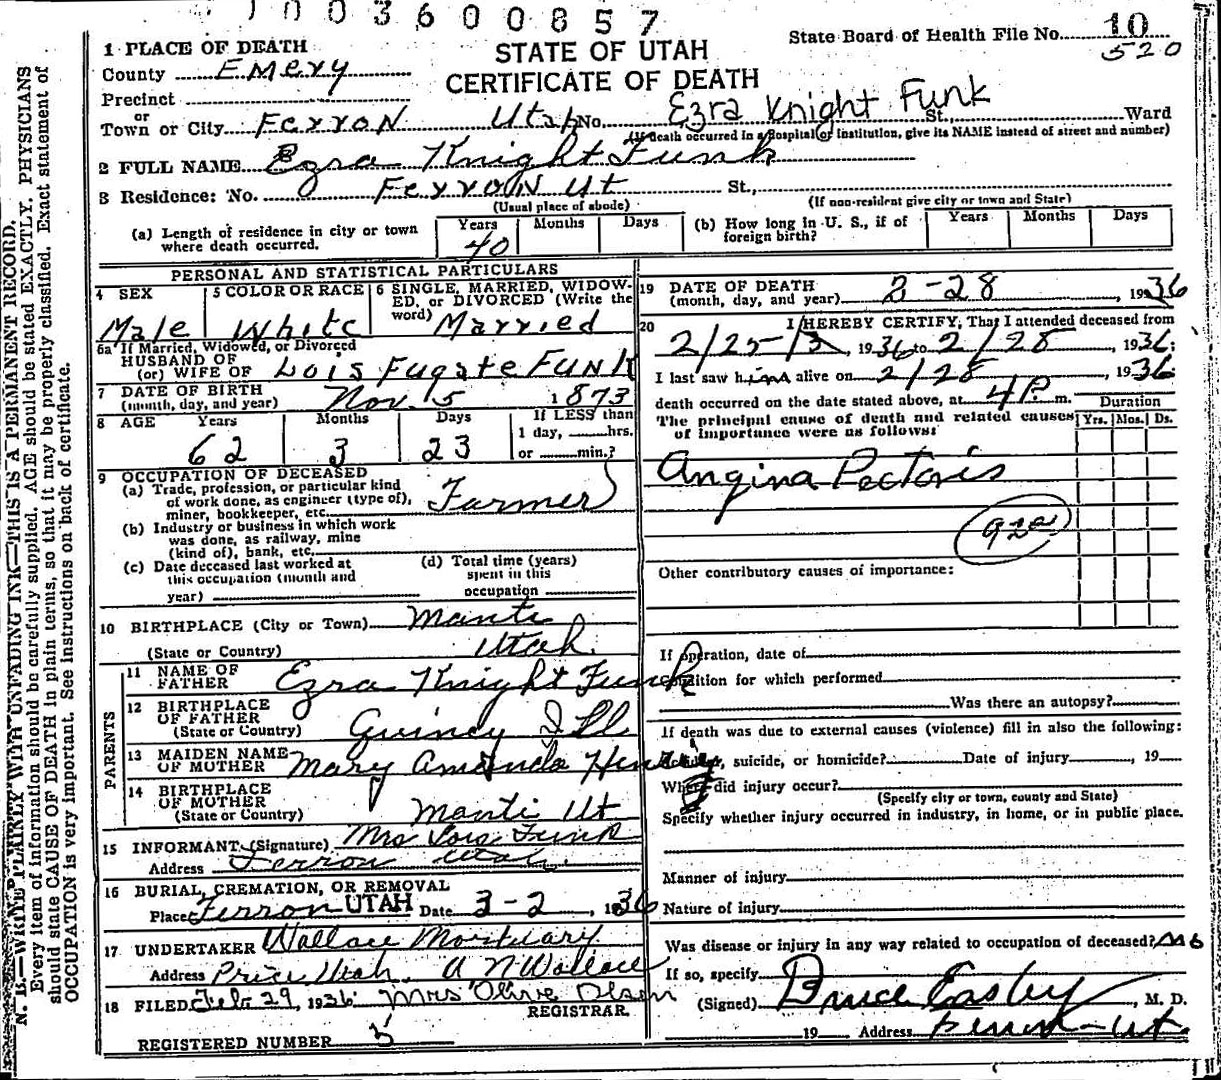 1003600857
State Board of Health File No. 10
520
1 PLACE OF DEATH
STATE OF UTAH
CERTIFICATE OF DEATH
County Emery
Precinct
or
Town or City Ferron Utah No. Ezra Knight Funk St., Ward
(If death occurred in a hospital or institution, give its NAME instead of street and number)
2 FULL NAME Ezra Knight Funk
3 Residence: No. Ferron Ut St.,
(Usual place of abode) (If non-resident give city or town and State)
(a) Length of residence in city or town where death occurred. Years 40 Months Days
(b) How long in U. S., if of foreign birth? Years Months Days
PERSONAL AND STATISTICAL PARTICULARS
4 SEX Male
5 COLOR OR RACE White
6 SINGLE, MARRIED, WIDOWED, or DIVORCED (Write the word) Married
6a If Married, Widowed, or Divorced
HUSBAND OF
(or) WIFE OF Lois Fugate Funk
7 DATE OF BIRTH
(month, day, and year) Nov. 5 1873
8 AGE Years 62 Months 3 Days 23 If LESS than 1 day, hrs. or min.?
9 OCCUPATION OF DECEASED
(a) Trade, profession, or particular kind
of work done, as engineer (type of),
miner, bookkeeper, etc. Farmer
(b) Industry or business in which work
was done, as railway, mine
(kind of), bank, etc.
(c) Date deceased last worked at
this occupation (month and
year)
(d) Total time (years)
spent in this
occupation
10 BIRTHPLACE (City or Town) Manti
(State or Country) Utah.
PARENTS
11 NAME OF
FATHER Ezra Knight Funk
12 BIRTHPLACE
OF FATHER
(State or Country) Quincy Ill
13 MAIDEN NAME
OF MOTHER Mary Amanda Henry
14 BIRTHPLACE
OF MOTHER
(State or Country) Manti Ut
15 INFORMANT (Signature) Mrs Lois Funk
Address Ferron Utah.
16 BURIAL, CREMATION, OR REMOVAL
Place Ferron UTAH Date 3-2, 1936
17 UNDERTAKER Wallace Mortuary
Address Price Utah. A N Wallace
18 FILED Feb. 29, 1936 Mrs Olive Olsen
REGISTRAR.
REGISTERED NUMBER 5
19 DATE OF DEATH
(month, day, and year) 2-28, 1936
20 I HEREBY CERTIFY, That I attended deceased from
2/25, 1936 to 2/28, 1936;
I last saw him alive on 2/28, 1936
death occurred on the date stated above, at 4 P. m. Duration
The principal cause of death and related causes
of importance were as follows: Yrs. Mos. Ds.
Angina Pectoris
92a
Other contributory causes of importance:
If operation, date of
condition for which performed
Was there an autopsy?
If death was due to external causes (violence) fill in also the following:
suicide, or homicide? Date of injury, 19
Where did injury occur?
(Specify city or town, county and State)
Specify whether injury occurred in industry, in home, or in public place.
Manner of injury
Nature of injury
Was disease or injury in any way related to occupation of deceased? no
If so, specify
(Signed) Bruce Easley, M. D.
19 Address Ferron - Ut.
N. B.—WRITE PLAINLY WITH UNFADING INK—THIS IS A PERMANENT RECORD.
Every item of information should be carefully supplied. AGE should be stated EXACTLY. PHYSICIANS
should state CAUSE OF DEATH in plain terms, so that it may be properly classified. Exact statement of
OCCUPATION is very important. See instructions on back of certificate.